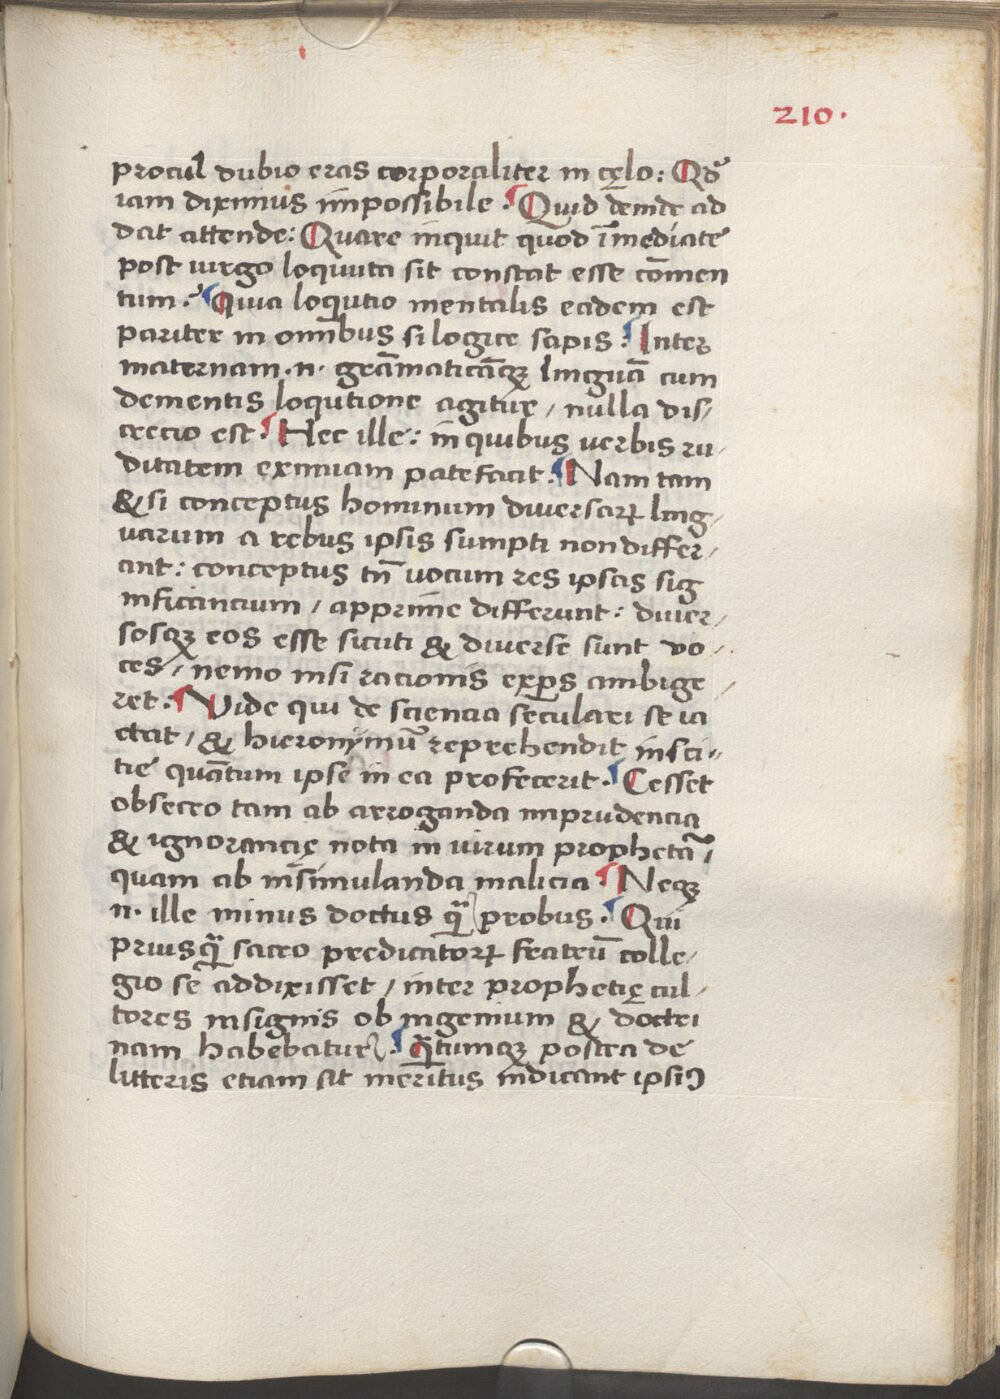 210.
procul dubio eras corporaliter in cęlo: Qđ
iam diximus impossibile. Quid deinde ad
dat attende: Quare inquit quod īmediate
post uirgo loquuta sit constat esse cōmen
tum. Quia loqutio mentalis eadem est
pariter in omnibus si logice sapis: Inter
maternam .n. grāmaticāqȝ linguā cum
dementis loqutione agitur / nulla dis/
crecio est. Hec ille: in quibus uerbis ru/
ditatem eximiam patefacit. Nam tam
& si conceptus hominum diuersarꝝ ling/
uarum a rebus ipsis sumpti non differ/
ant: conceptus tn̄ uocum res ipsas sig
nificancium / apprime differunt: diuer/
sosqȝ eos esse sicuti & diuerse sunt uo/
ces / nemo nisi racionis exꝑs ambige/
ret. Vide qui de sciencia seculari se ia
ctat / & hieronymū reprehendit insci/
tie quātum ipse in ea profecerit. Cesset
obsecro tam ab arroganda imprudencia
& ignorancię nota in uirum prophetā /
quam ab insimulanda malicia. Neqȝ
.n. ille minus doctus q̄ probus. Qui
priusq̄ sacro predicatorꝝ fratrū colle/
gio se addixisset / inter prophetię cul/
tores insignis ob ingenium & doctri
nam habebatur. q̄tumqȝ postea de
litteris etiam sit meritus indicant ipsiꝰ